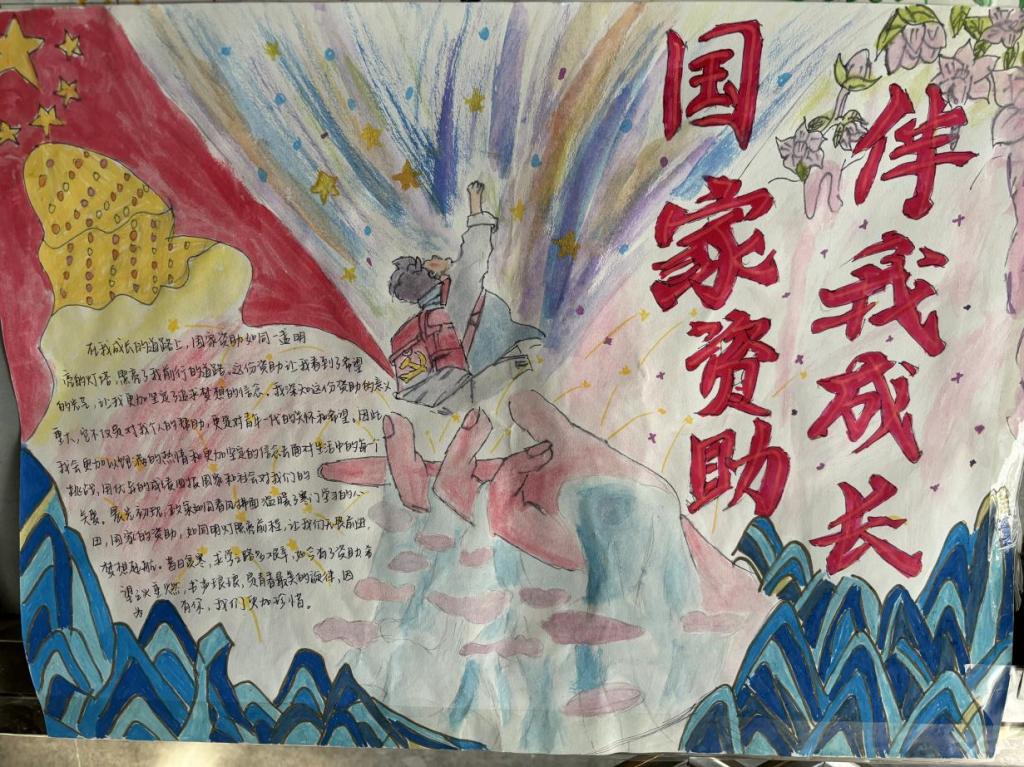 国家资助
伴我成长
在我成长的道路上,国家资助如同一盏明
亮的灯塔,照亮了我前行的道路。这份资助让我看到了希望
的光芒,让我更加坚定了追求梦想的信念。我深知这份资助的意义
重大,它不仅是对我个人的帮助,更是对青年一代的关怀和希望。因此
我会更加以饱满的热情和更加坚定的信念去面对生活中的每个
挑战,用优异的成绩回报国家和社会对我们的
关爱。晨光初现,政策如同春风拂面温暖了寒门学子的心
田,国家的资助,如同明灯照亮前程,让我们无畏前进,
梦想起航。昔日贫寒,求学之路多艰辛,如今有了资助希
望之火重燃,书声琅琅,是青春最美的旋律,因
为 有你,我们更加珍惜。